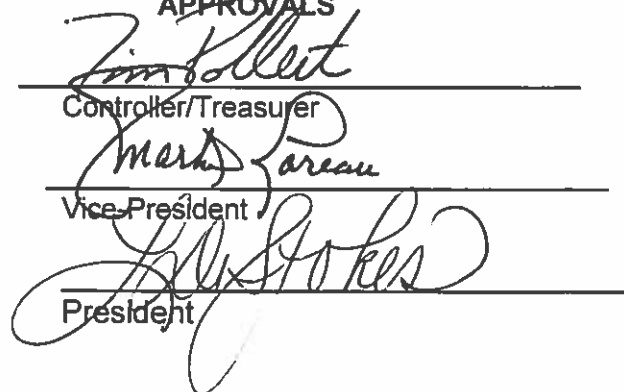 APPROVALS
Tim Pollert
Controller/Treasurer
Mark Loreau
Vice-President
Stokes
President